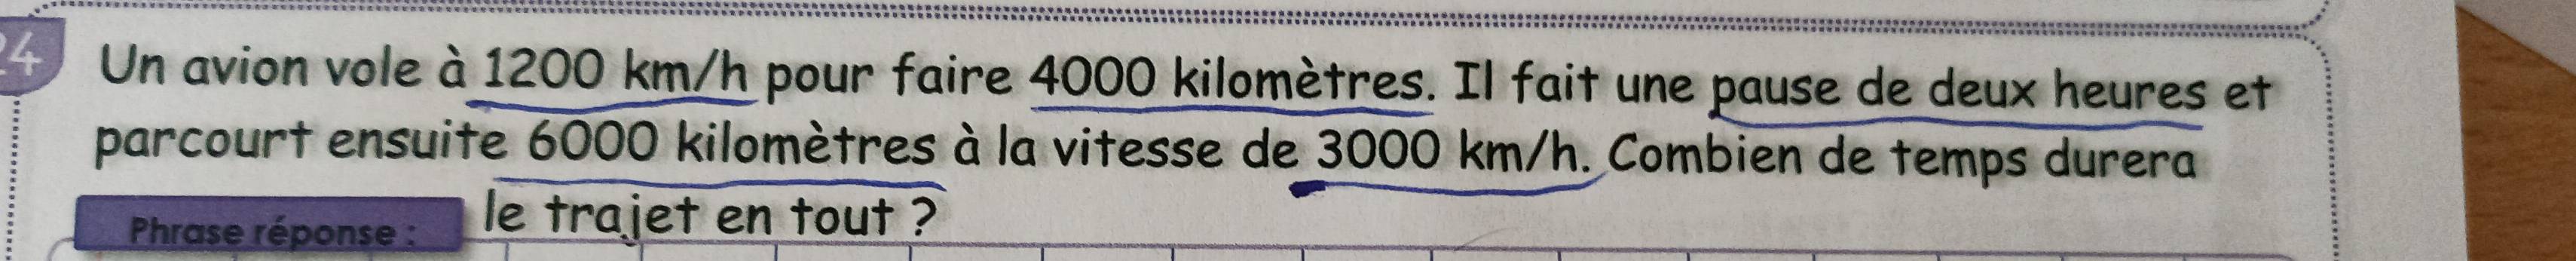 24
Un avion vole à 1200 km/h pour faire 4000 kilomètres. Il fait une pause de deux heures et
parcourt ensuite 6000 kilomètres à la vitesse de 3000 km/h. Combien de temps durera
le trajet en tout ?
Phrase réponse :